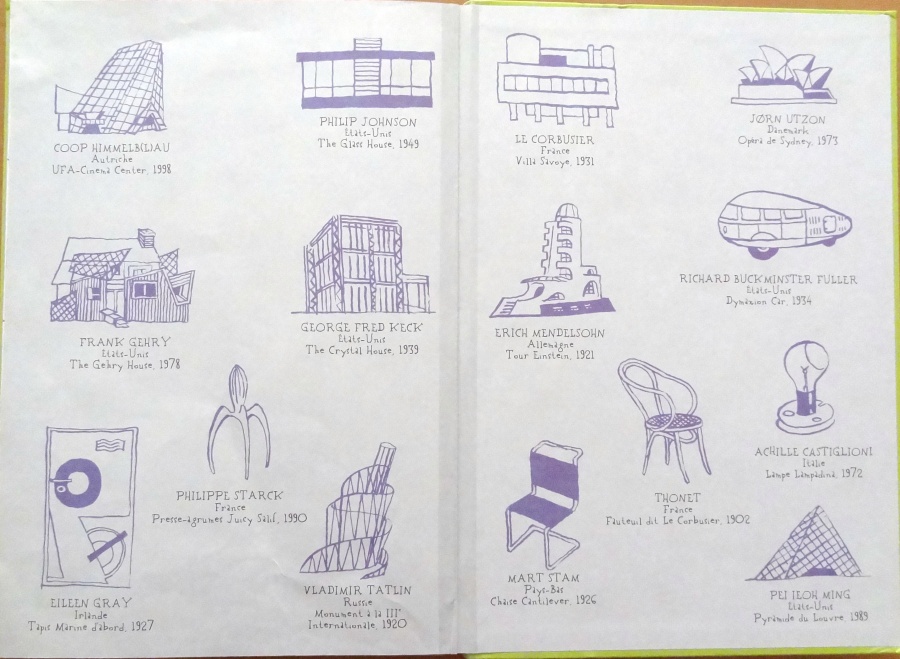 COOP HIMMELB(L)AU
Autriche
UFA-Cinema Center, 1998
PHILIP JOHNSON
Etats-Unis
The Glass House, 1949
FRANK GEHRY
Etats-Unis
The Gehry House, 1978
GEORGE FRED KECK
Etats-Unis
The Crystal House, 1939
PHILIPPE STARCK
France
Presse-agrumes Juicy Salif, 1990
EILEEN GRAY
Irlande
Tapis Marine d'abord, 1927
VLADIMIR TATLIN
Russie
Monument à la IIIe
Internationale, 1920
LE CORBUSIER
France
Villa Savoye, 1931
JØRN UTZON
Danemark
Opéra de Sydney, 1973
ERICH MENDELSOHN
Allemagne
Tour Einstein, 1921
RICHARD BUCKMINSTER FULLER
Etats-Unis
Dymaxion Car, 1934
MART STAM
Pays-Bas
Chaise Cantilever, 1926
THONET
France
Fauteuil dit Le Corbusier, 1902
ACHILLE CASTIGLIONI
Italie
Lampe Lampadina, 1972
PEI IEOH MING
Etats-Unis
Pyramide du Louvre, 1989